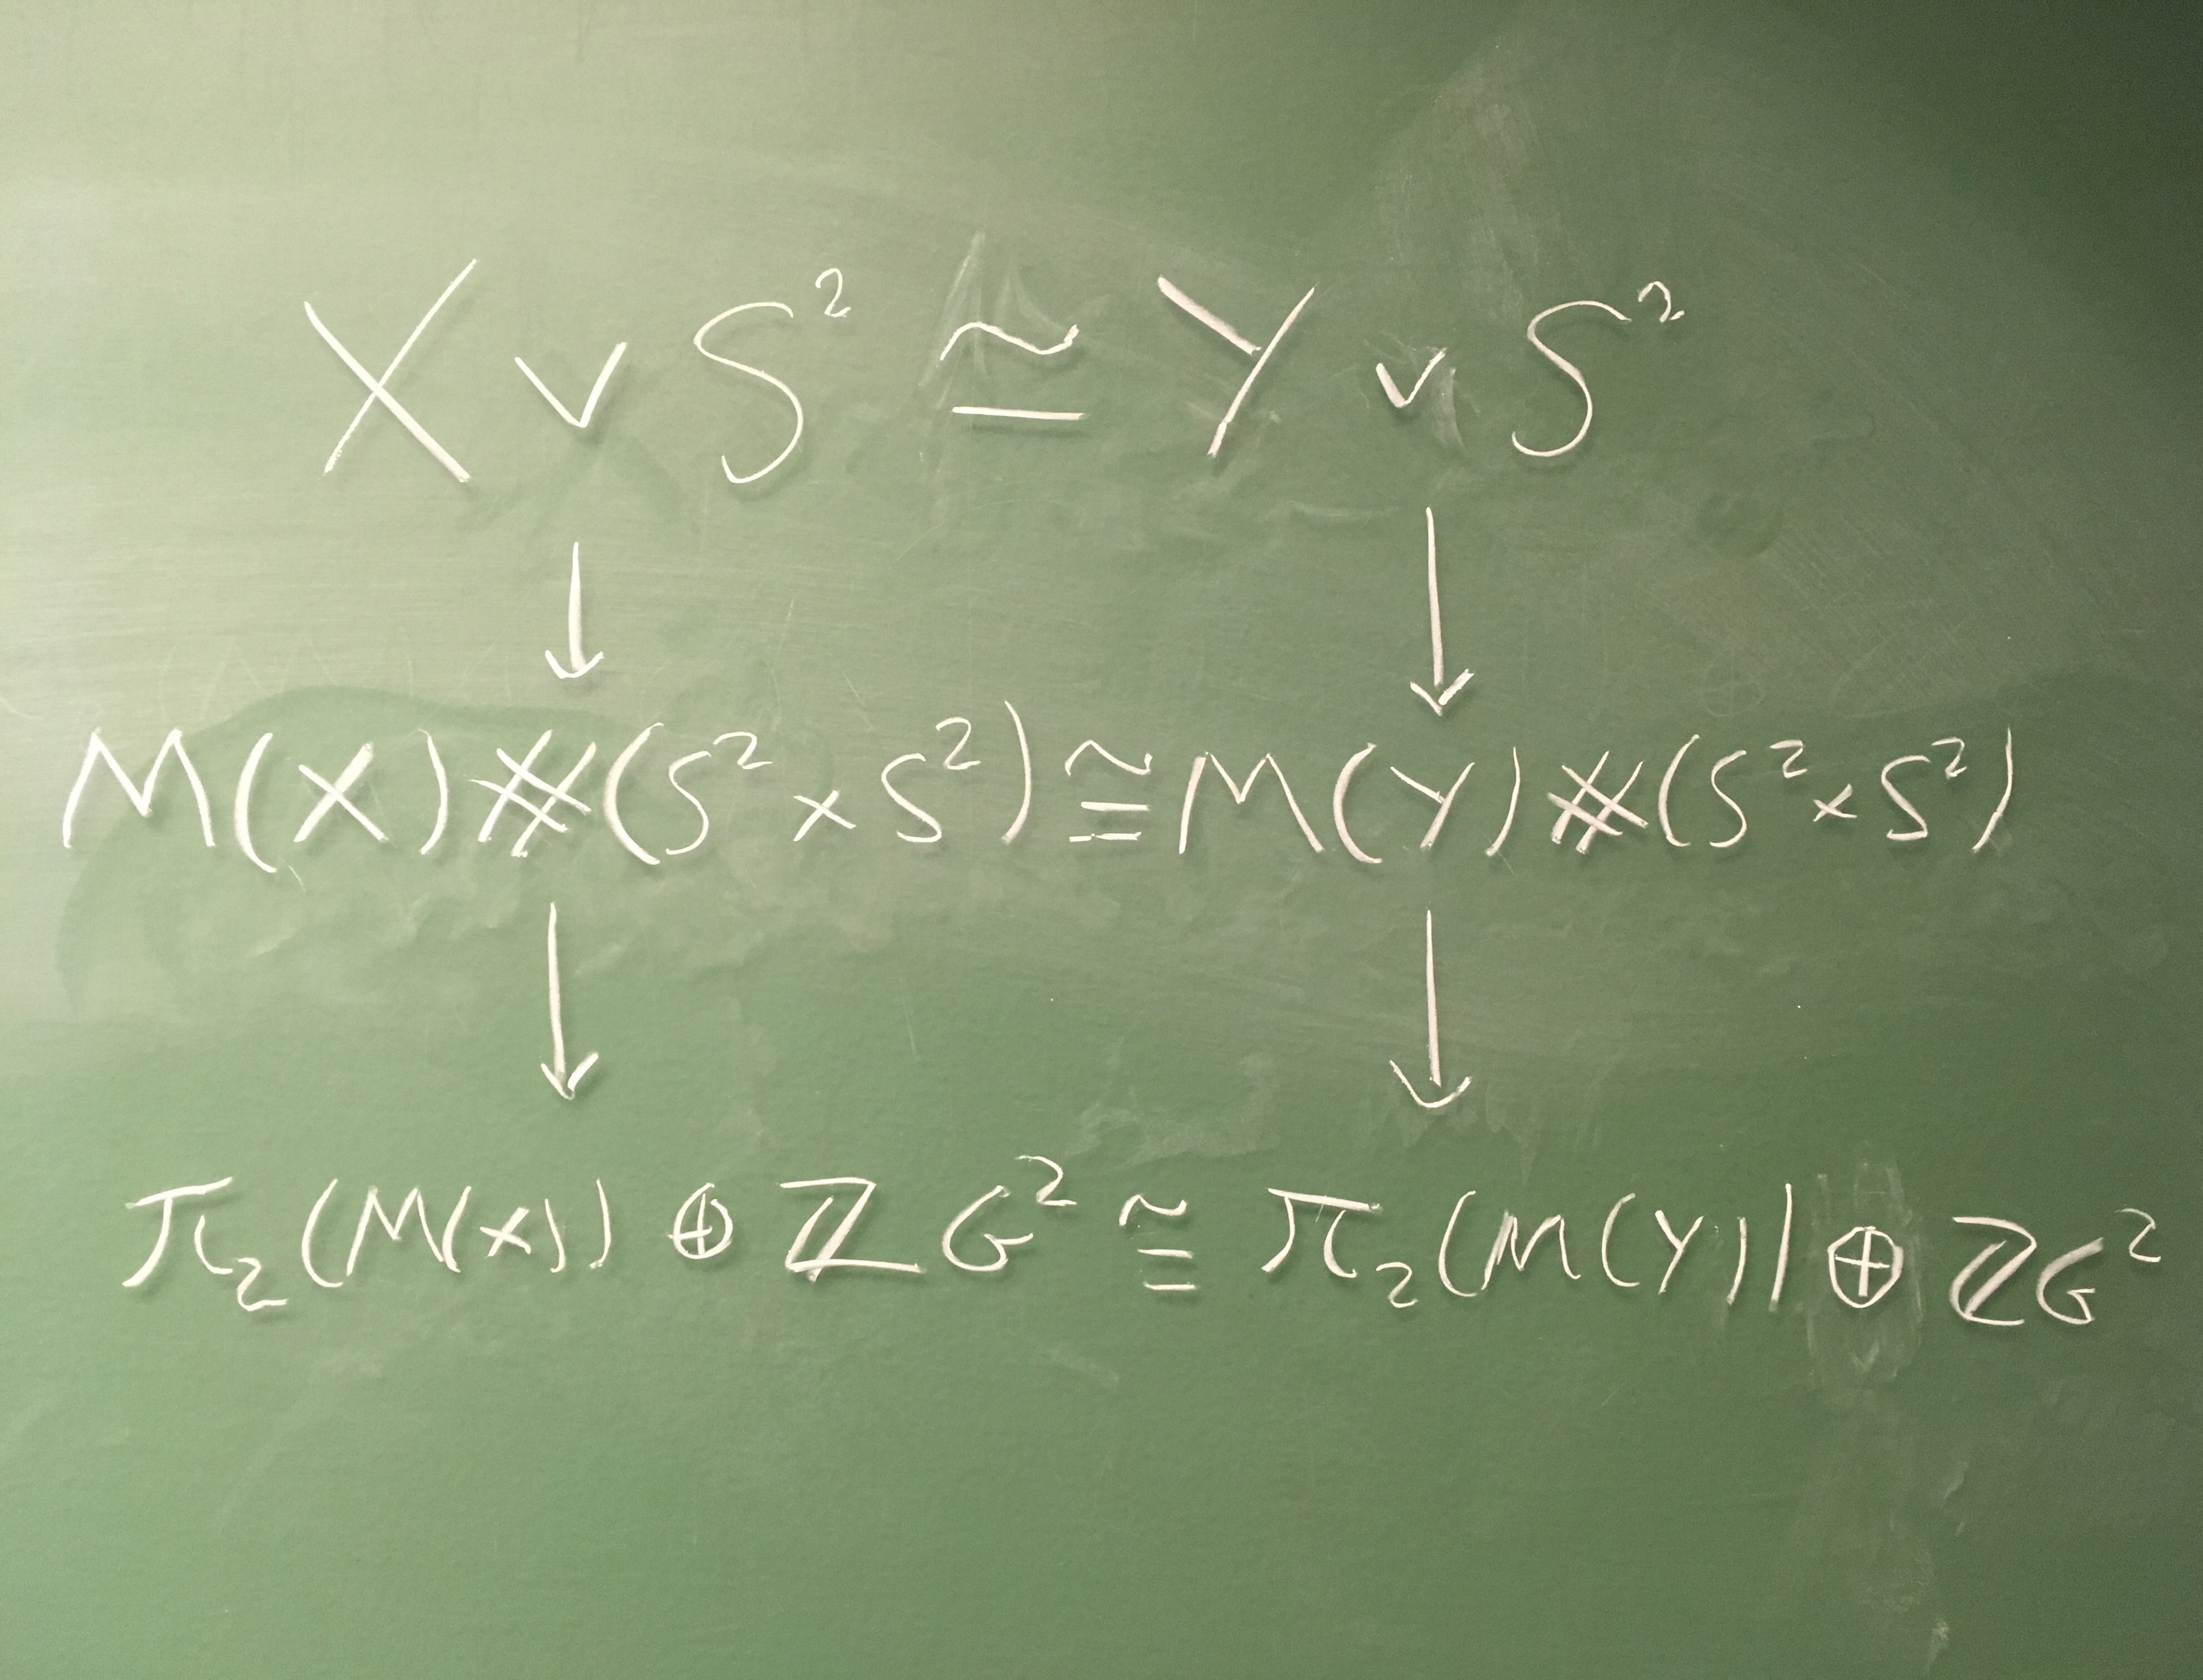 X ∨ S² ≃ Y ∨ S²
↓ ↓
M(X)#(S²×S²)≅M(Y)#(S²×S²)
↓ ↓
π₂(M(X))⊕ℤG²≅π₂(M(Y))⊕ℤG²